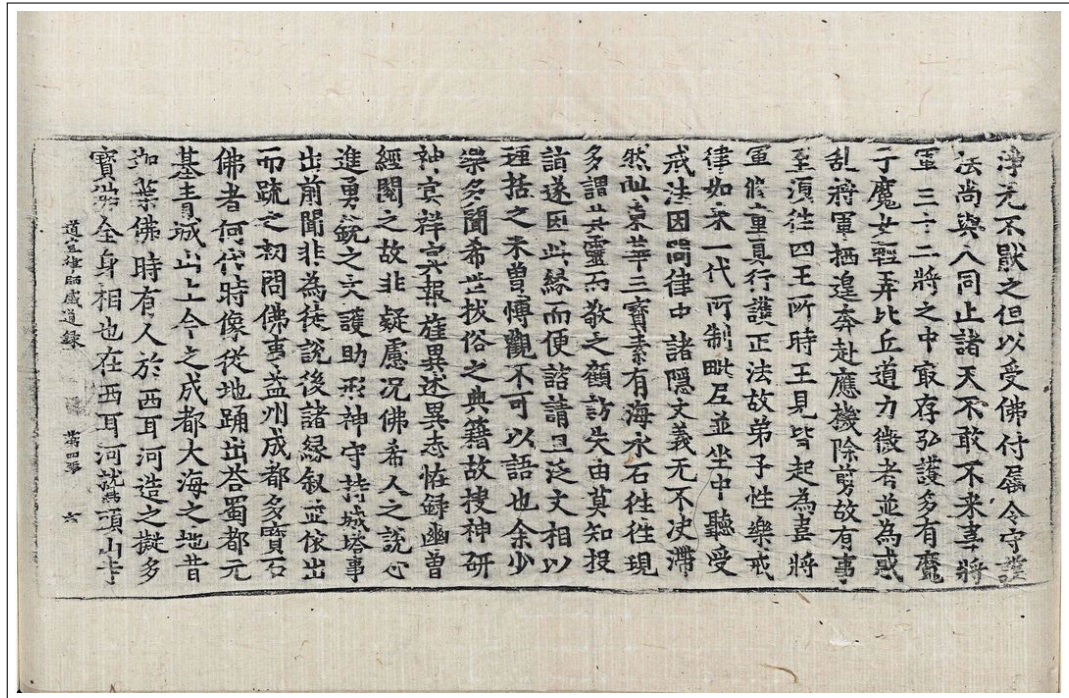 淨元不猒之但以受佛付屬令守護
法尚與人同止諸天不敢不来韋將
軍三十二將之中㝡存弘護多有魔
子魔女輕弄比丘道力微者並為惑
乱將軍栖遑奔赴應機除剪故有事
至湏往四王所時王見皆起為韋將
軍修童真行護正法故弟子性樂戒
律如来一代所制毗尼並坐中聽受
戒法因問律中諸隱文義无不决滯
然此東華三寶素有海水石往往現
多謂其靈而敬之顧訪失由莫知投
詣遂因此緣而便詰請且泛文相以
理括之未曾博觀不可以語也余少
樂多聞希世拔俗之典籍故搜神研
神冥祥冥報旌異述異志恠録幽曽
經閱之故非疑慮况佛希人之說心
進勇銳之文護助形神守持城塔事
出前聞非為徒說後諸緣叙並依出
而疏之初問佛事益州成都多寳石
佛者何代時像從地踊出荅蜀都元
基青城山上今之成都大海之地昔
迦葉佛時有人於西耳河造之擬多
寳佛全身相也在西耳河鷲頭山寺
道宣律師感通録 萬四事 六